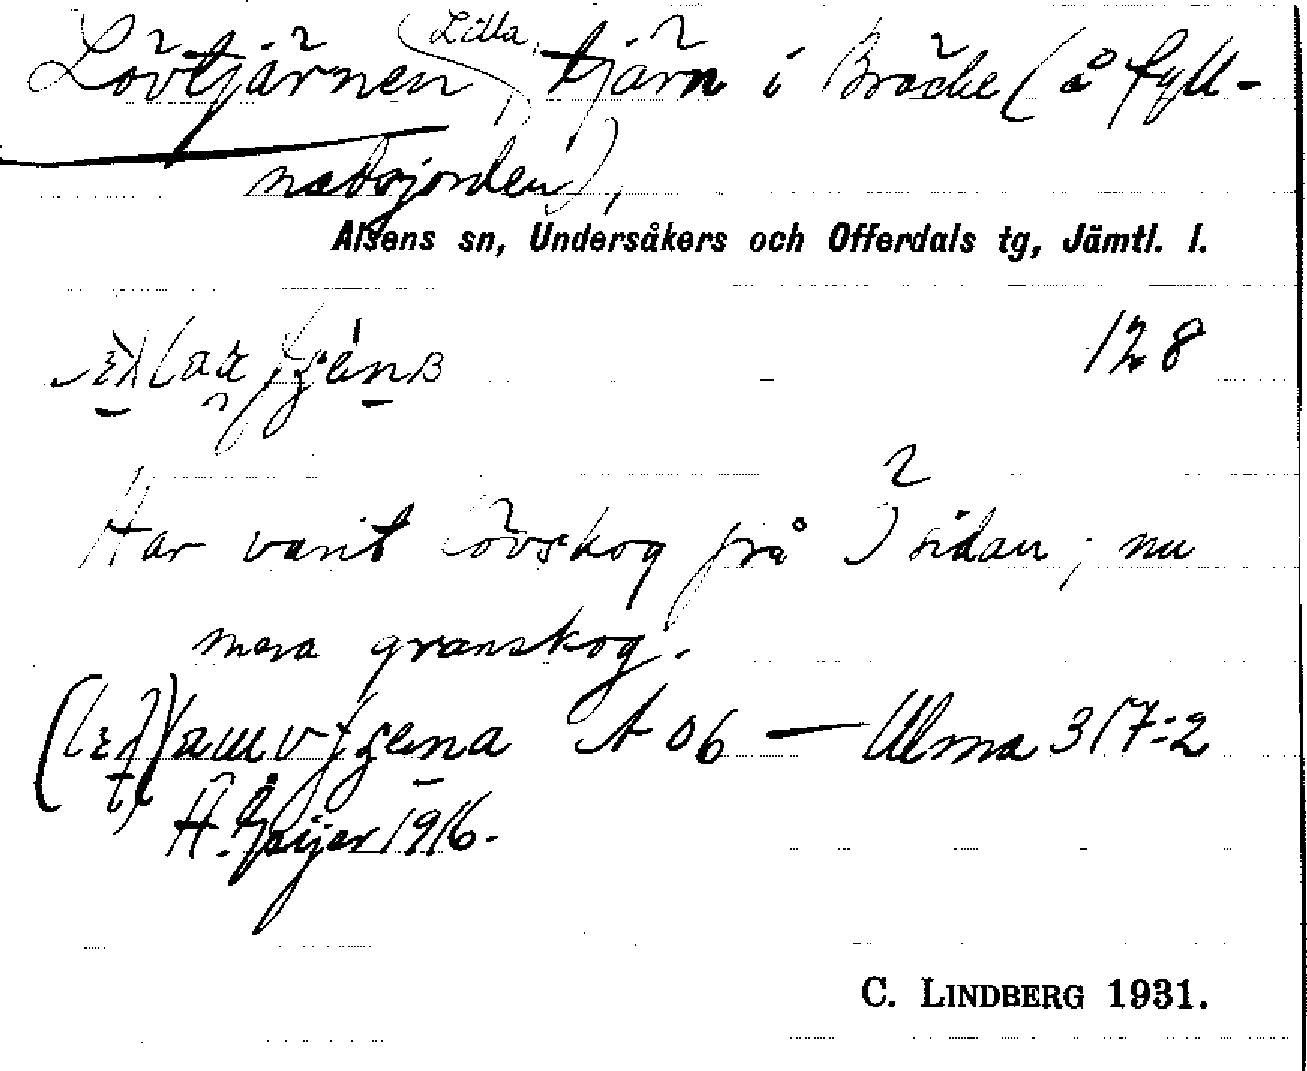 Lövtjärnen, Lilla, tjärn i Bräcke (å Fyll-
näsjorden),
Alsens sn, Undersåkers och Offerdals tg, Jämtl. l.
128
Har varit lövskog på I sidan; nu
mera granskog.
A 06 — Ulma 317:2
H. Geijer 1916.
C. LINDBERG 1931.